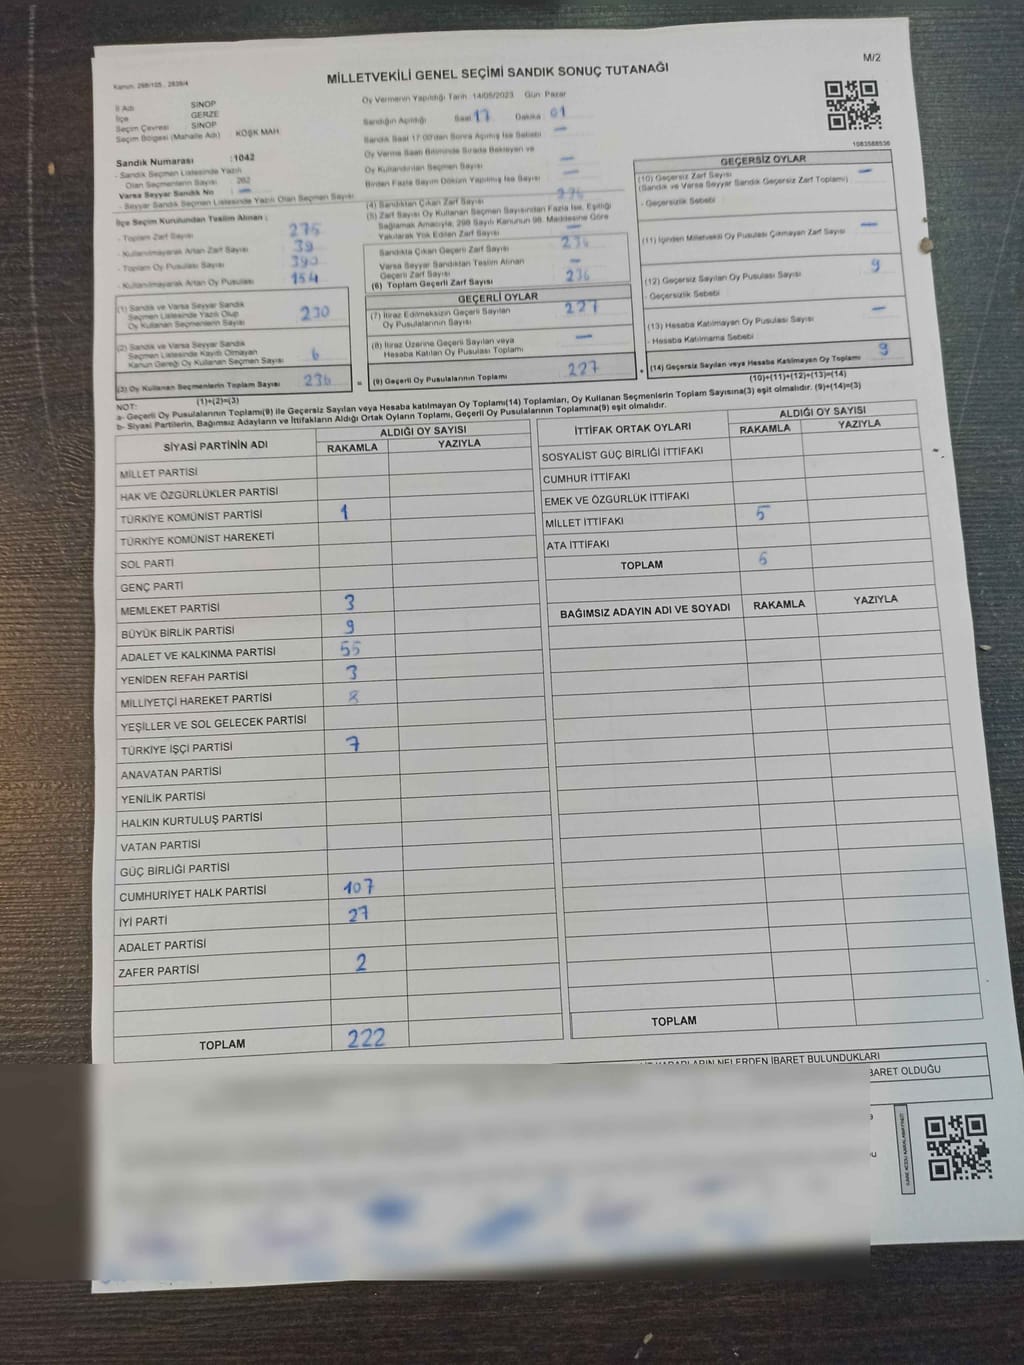 Kanun: 298/105 , 2839/4
MİLLETVEKİLİ GENEL SEÇİMİ SANDIK SONUÇ TUTANAĞI
M/2
İl Adı SİNOP
İlçe GERZE
Seçim Çevresi SİNOP
Seçim Bölgesi (Mahalle Adı) KÖŞK MAH.
Sandık Numarası :1042
- Sandık Seçmen Listesinde Yazılı
Olan Seçmenlerin Sayısı : 262
Varsa Seyyar Sandık No : —
- Seyyar Sandık Seçmen Listesinde Yazılı Olan Seçmen Sayısı
İlçe Seçim Kurulundan Teslim Alınan :
- Toplam Zarf Sayısı 275
- Kullanılmayarak Artan Zarf Sayısı 39
- Toplam Oy Pusulası Sayısı 390
- Kullanılmayarak Artan Oy Pusulası 154
(1) Sandık ve Varsa Seyyar Sandık
Seçmen Listesinde Yazılı Olup
Oy Kullanan Seçmenlerin Sayısı 230
(2) Sandık ve Varsa Seyyar Sandık
Seçmen Listesinde Kayıtlı Olmayan
Kanun Gereği Oy Kullanan Seçmen Sayısı 6
(3) Oy Kullanan Seçmenlerin Toplam Sayısı 236
(1)+(2)=(3)
Oy Vermenin Yapıldığı Tarih :14/05/2023 Gün: Pazar
Sandığın Açıldığı Saat 17 Dakika 01
Sandık Saat 17:00'den Sonra Açılmış İse Sebebi —
Oy Verme Saati Bitiminde Sırada Bekleyen ve
Oy Kullandırılan Seçmen Sayısı —
Birden Fazla Sayım Döküm Yapılmış İse Sayısı —
(4) Sandıktan Çıkan Zarf Sayısı 236
(5) Zarf Sayısı Oy Kullanan Seçmen Sayısından Fazla İse, Eşitliği
Sağlamak Amacıyla, 298 Sayılı Kanunun 98. Maddesine Göre
Yakılarak Yok Edilen Zarf Sayısı —
Sandıkta Çıkan Geçerli Zarf Sayısı 236
Varsa Seyyar Sandıktan Teslim Alınan
Geçerli Zarf Sayısı —
(6) Toplam Geçerli Zarf Sayısı 236
GEÇERLİ OYLAR
(7) İtiraz Edilmeksizin Geçerli Sayılan
Oy Pusulalarının Sayısı 227
(8) İtiraz Üzerine Geçerli Sayılan veya
Hesaba Katılan Oy Pusulası Toplamı —
= (9) Geçerli Oy Pusulalarının Toplamı 227 +
1083588536
GEÇERSİZ OYLAR
(10) Geçersiz Zarf Sayısı
(Sandık ve Varsa Seyyar Sandık Geçersiz Zarf Toplamı) —
- Geçersizlik Sebebi :
(11) İçinden Milletvekili Oy Pusulası Çıkmayan Zarf Sayısı —
(12) Geçersiz Sayılan Oy Pusulası Sayısı 9
- Geçersizlik Sebebi :
(13) Hesaba Katılmayan Oy Pusulası Sayısı —
- Hesaba Katılmama Sebebi :
(14) Geçersiz Sayılan veya Hesaba Katılmayan Oy Toplamı 9
(10)+(11)+(12)+(13)=(14)
NOT:
a- Geçerli Oy Pusulalarının Toplamı(9) ile Geçersiz Sayılan veya Hesaba katılmayan Oy Toplamı(14) Toplamları, Oy Kullanan Seçmenlerin Toplam Sayısına(3) eşit olmalıdır. (9)+(14)=(3)
b- Siyasi Partilerin, Bağımsız Adayların ve İttifakların Aldığı Ortak Oyların Toplamı, Geçerli Oy Pusulalarının Toplamına(9) eşit olmalıdır.
SİYASİ PARTİNİN ADI ALDIĞI OY SAYISI
RAKAMLA YAZIYLA
MİLLET PARTİSİ
HAK VE ÖZGÜRLÜKLER PARTİSİ
TÜRKİYE KOMÜNİST PARTİSİ 1
TÜRKİYE KOMÜNİST HAREKETİ
SOL PARTİ
GENÇ PARTİ
MEMLEKET PARTİSİ 3
BÜYÜK BİRLİK PARTİSİ 9
ADALET VE KALKINMA PARTİSİ 55
YENİDEN REFAH PARTİSİ 3
MİLLİYETÇİ HAREKET PARTİSİ 8
YEŞİLLER VE SOL GELECEK PARTİSİ
TÜRKİYE İŞÇİ PARTİSİ 7
ANAVATAN PARTİSİ
YENİLİK PARTİSİ
HALKIN KURTULUŞ PARTİSİ
VATAN PARTİSİ
GÜÇ BİRLİĞİ PARTİSİ
CUMHURİYET HALK PARTİSİ 107
İYİ PARTİ 27
ADALET PARTİSİ
ZAFER PARTİSİ 2
TOPLAM 222
İTTİFAK ORTAK OYLARI ALDIĞI OY SAYISI
RAKAMLA YAZIYLA
SOSYALİST GÜÇ BİRLİĞİ İTTİFAKI
CUMHUR İTTİFAKI
EMEK VE ÖZGÜRLÜK İTTİFAKI
MİLLET İTTİFAKI 5
ATA İTTİFAKI
TOPLAM
BAĞIMSIZ ADAYIN ADI VE SOYADI RAKAMLA YAZIYLA
TOPLAM
KARARLARIN NELERDEN İBARET BULUNDUKLARI
BARET OLDUĞU